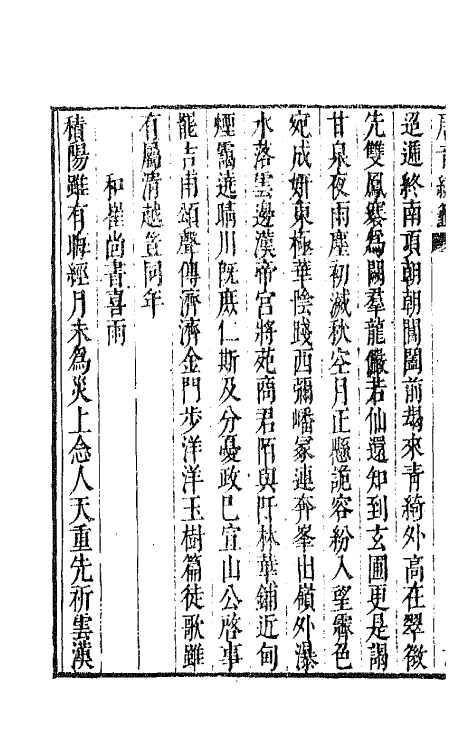 迢遞終南頂朝朝閶闔前朅來青綺外高在翠微
先雙鳳褰為闕羣龍儼若仙還知到玄圃更是謁
甘泉夜雨塵初滅秋空月正懸詭容紛入望霽色
宛成妍東極華陰踐西彌嶓冢連奔峯出嶺外瀑
水落雲邊漢帝宮將苑商君陌與阡林華鋪近甸
煙靄遶晴川既庶仁斯及分憂政已宣山公啓事
罷吉甫頌聲傳濟濟金門步洋洋玉樹篇徒歌雖
有屬清越豈同年
和崔尚書喜雨
積陽雖有晦經月未為災上念人天重先祈雲漢